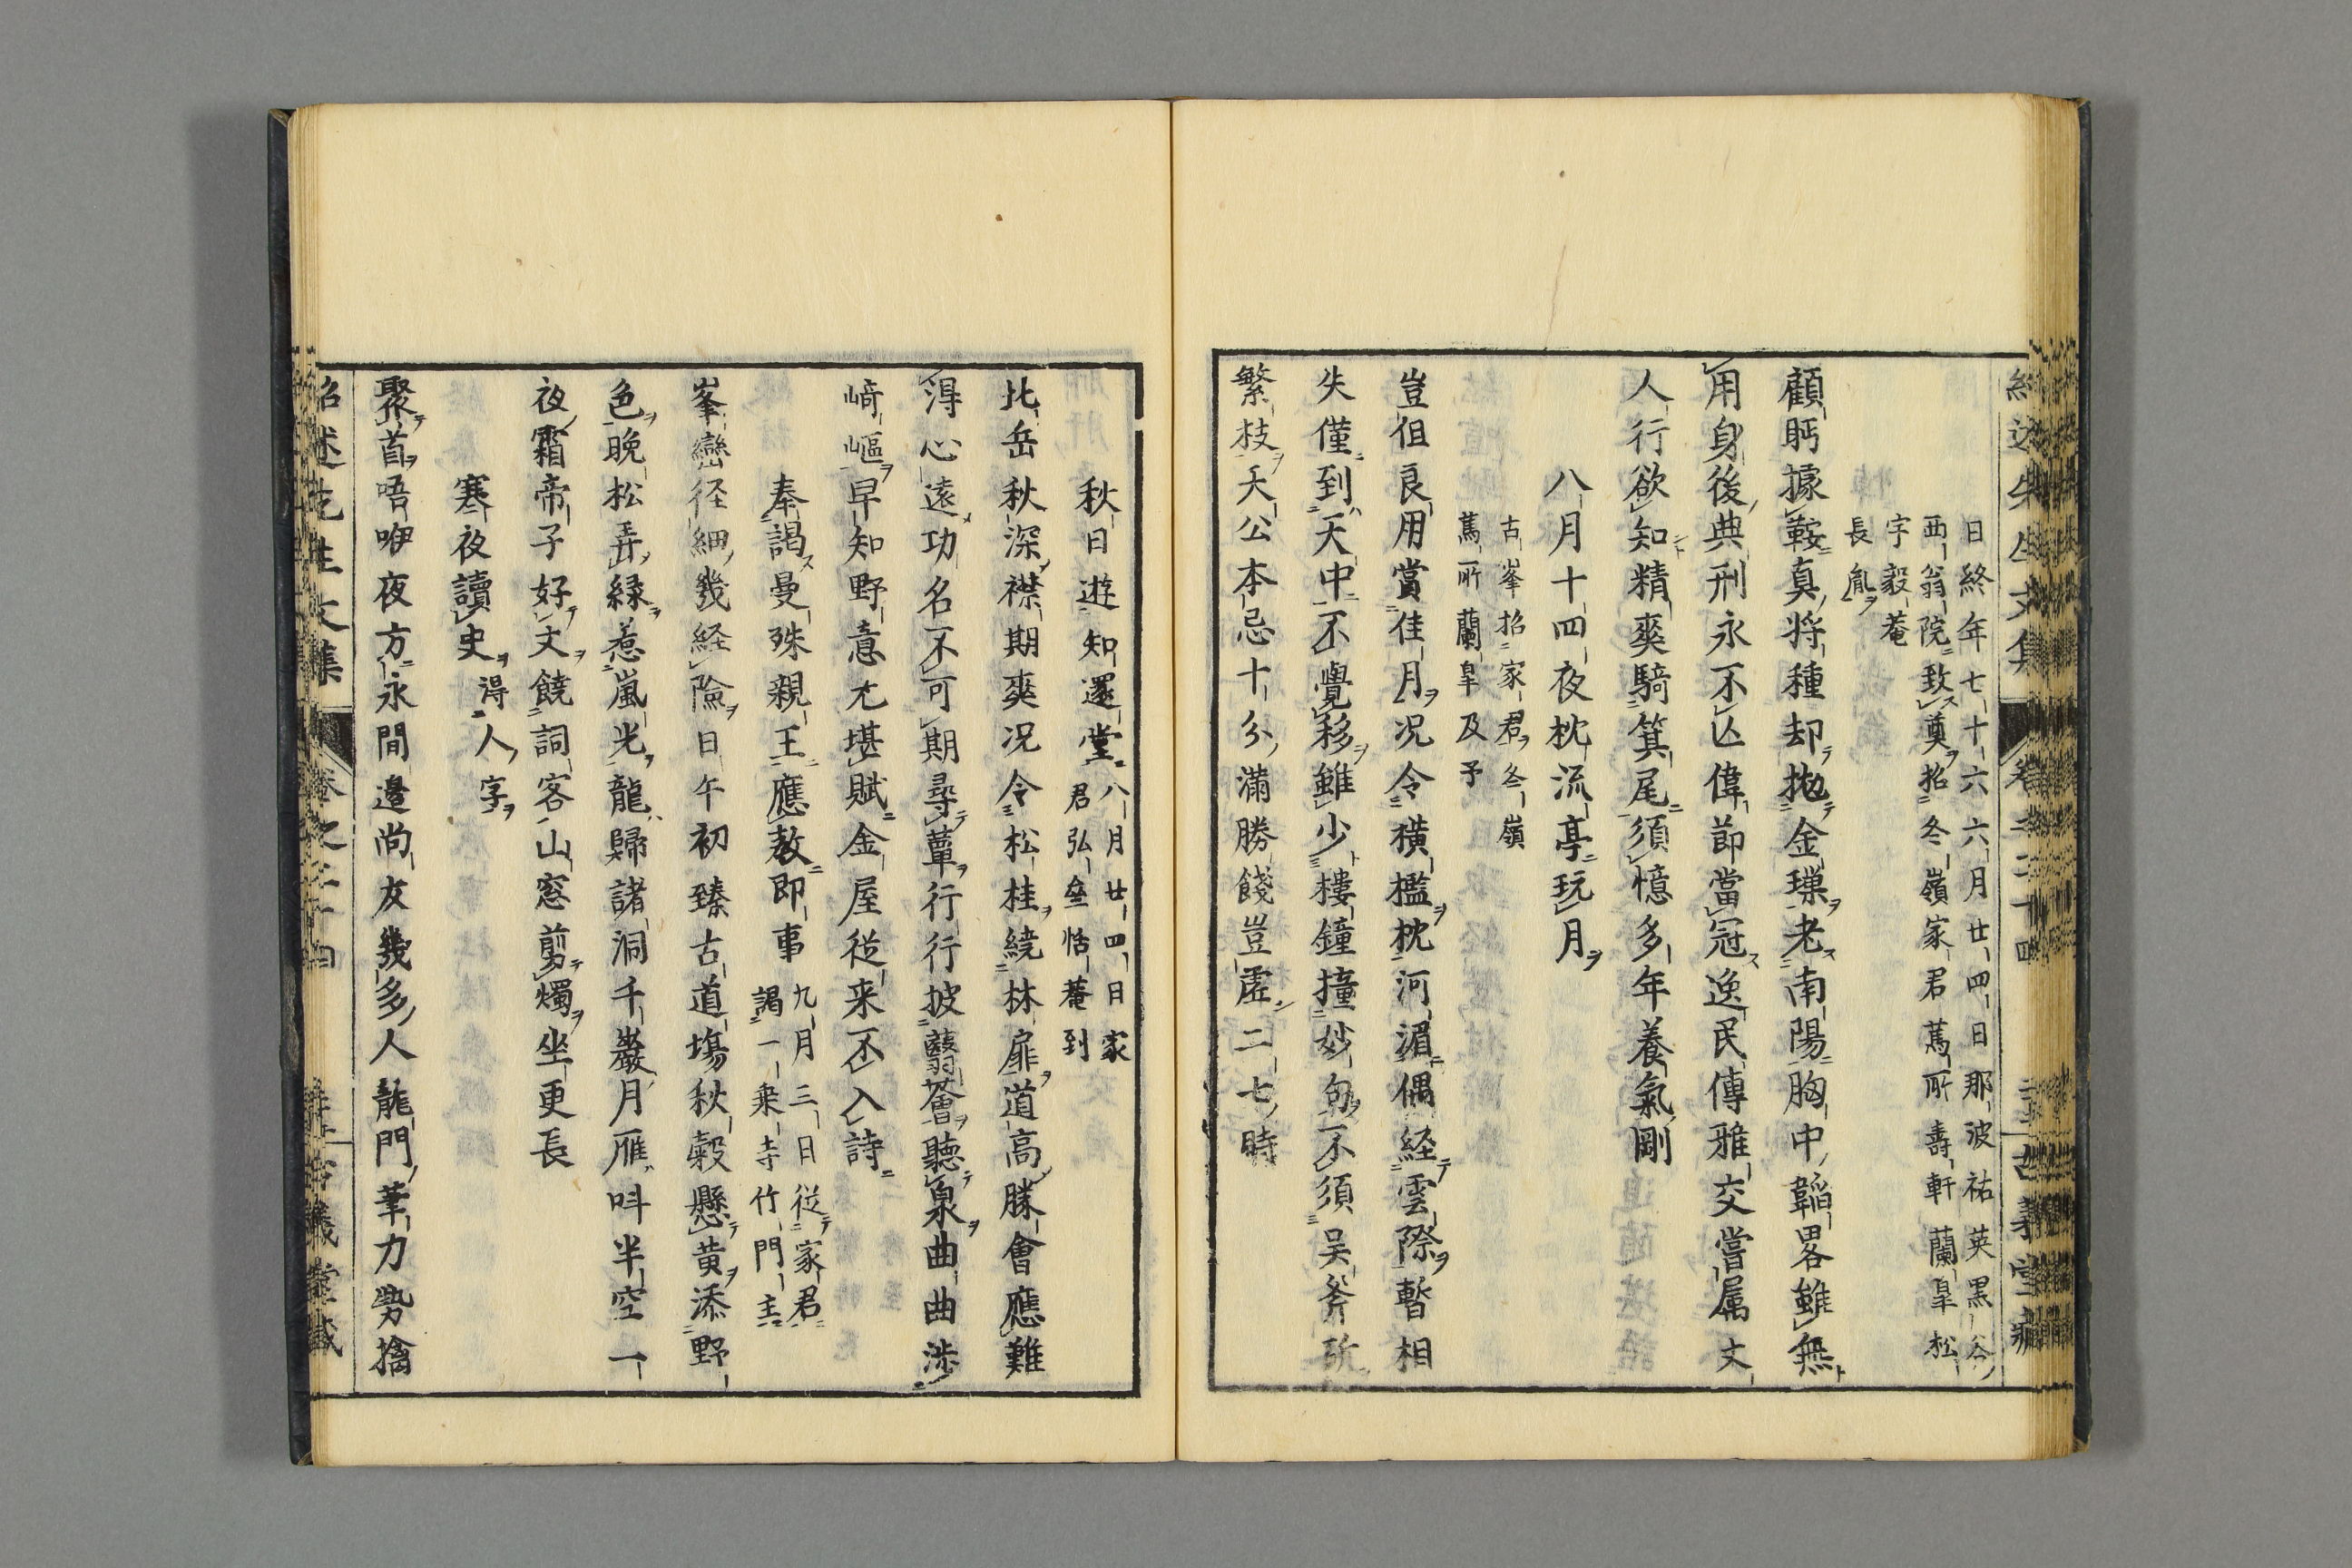 日終年七十六六月廿四日那波祐英黒谷
西翁院致奠招冬嶺家君蔿所壽軒蘭皐松
字毅菴
長胤
顧眄據鞍真将種却抛金璅老南陽胸中韜畧雖無
用身後典刑永不亾偉節當冠逸民傳雅交嘗属文
人行欲知精爽騎箕尾須憶多年養氣剛
八月十四夜枕流亭玩月
古峯招家君冬嶺
蔿所蘭皐及予
豈伹良用賞佳月况令横檻枕河湄偶経雲際暫相
失僅到天中不覺移雖少樓鐘撞妙句不須吴斧斫
繁枝天公本忌十分満勝餞豈虚二七時
秋日遊知還堂
八月廿四日家
君弘叄恬菴到
北岳秋深襟期爽况令松桂繞林扉道高勝會應難
淂心遠功名不可期尋蕈行行披翳薈聽泉曲曲渉
﨑嶇早知野意尤堪賦金屋従来不入詩
奉謁曼殊親王應教即事
九月三日従家君
謁一乗寺竹門主
峯巒径細幾経險日午初臻古道塲秋榖懸黄添野
色晩松弄緑惹嵐光龍歸諸洞千巖月雁呌半空一
夜霜帝子好文饒詞客山窓剪燭坐更長
寒夜讀史
淂人字
聚首唔咿夜方永間邉尚友幾多人龍門筆力勢擒
紹述先生文集
卷之二十四
古義堂藏